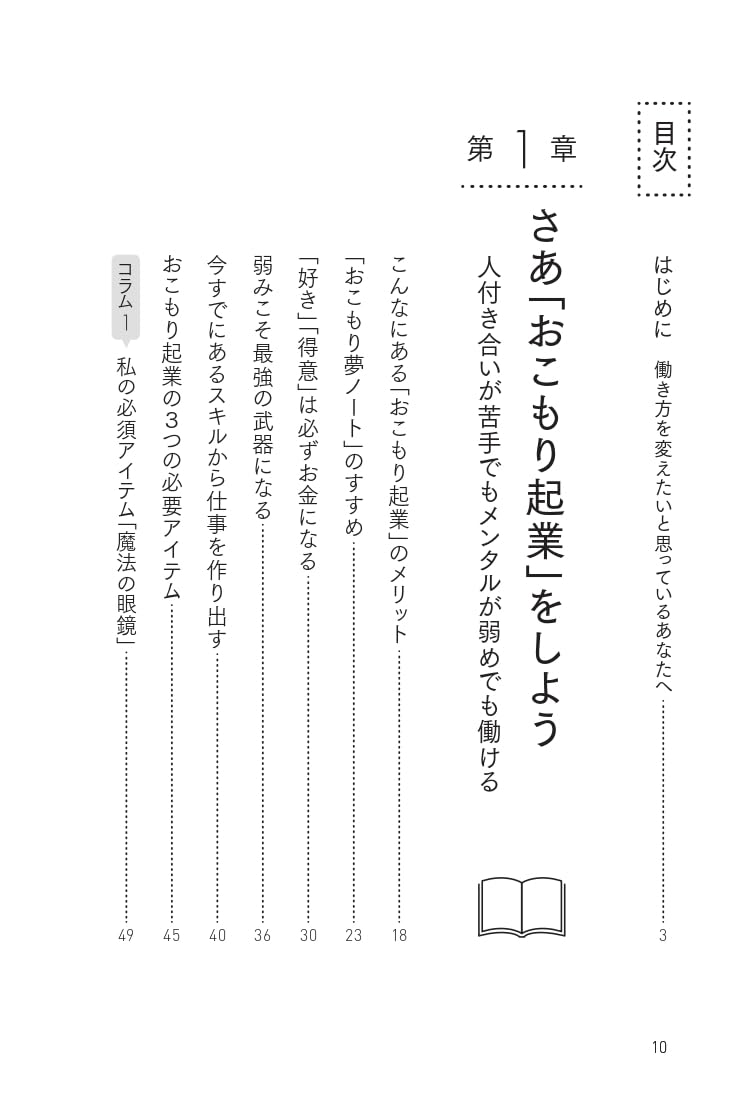 目次
はじめに　働き方を変えたいと思っているあなたへ 3
第1章
さあ「おこもり起業」をしよう
人付き合いが苦手でもメンタルが弱めでも働ける
こんなにある「おこもり起業」のメリット 18
「おこもり夢ノート」のすすめ 23
「好き」「得意」は必ずお金になる 30
弱みこそ最強の武器になる 36
今すでにあるスキルから仕事を作り出す 40
おこもり起業の3つの必要アイテム 45
コラム1 私の必須アイテム「魔法の眼鏡」 49
10